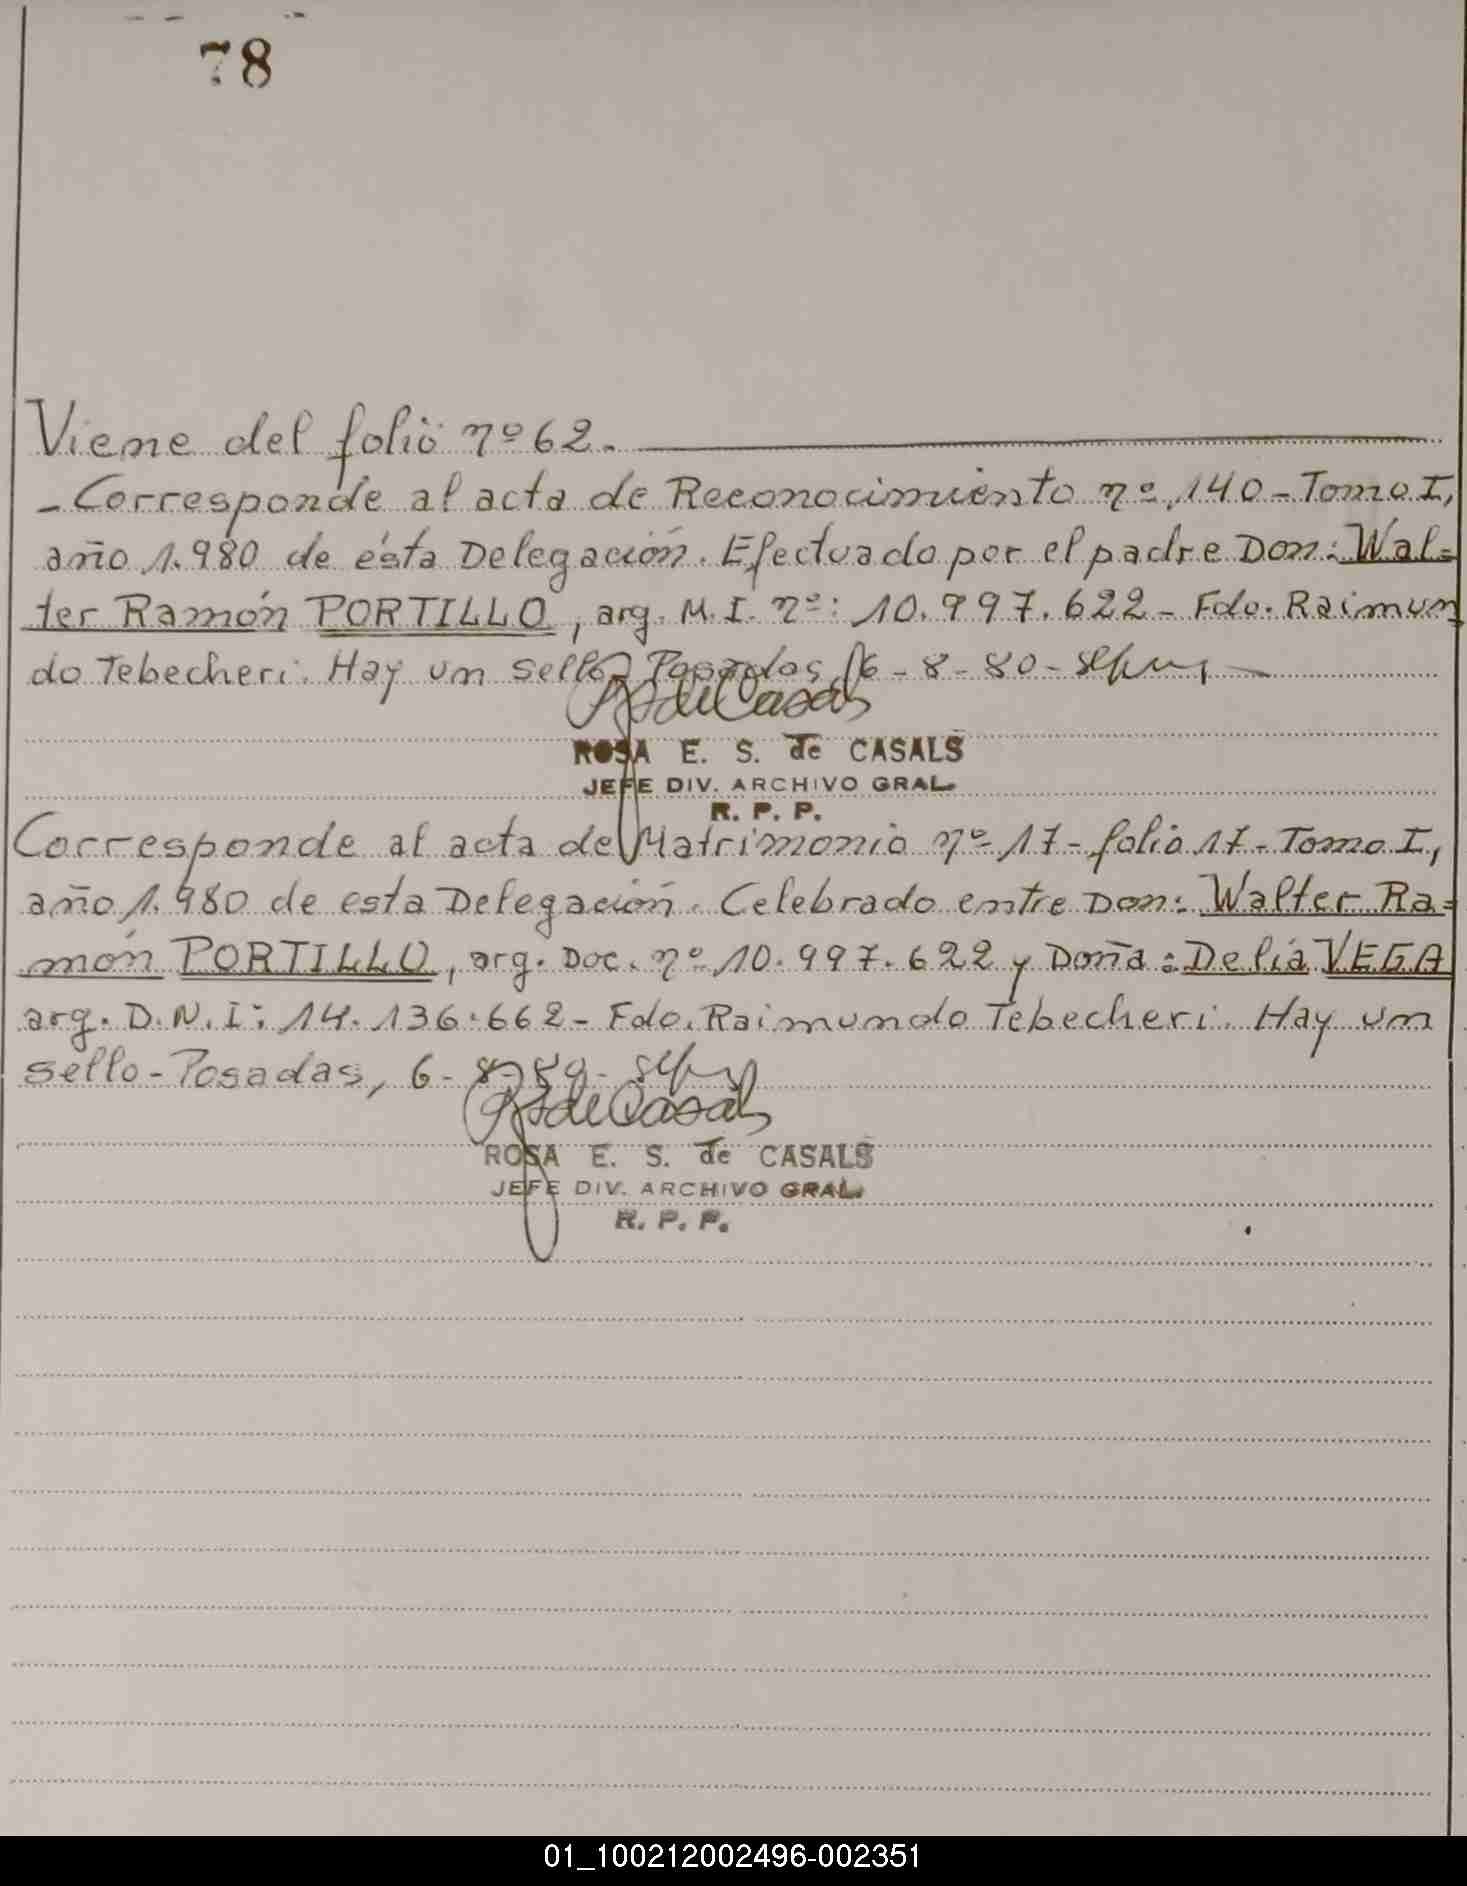 78
Viene del folio nº 62.
- Corresponde al acta de Reconocimiento nº 140 - Tomo I,
año 1.980 de ésta Delegación. Efectuado por el padre Don: Wal=
ter Ramón PORTILLO, arg. M.I. nº: 10.997.622 - Fdo. Raimun
do Tebecheri. Hay un sello Posadas, 6 - 8 - 80 -
RS de Casals
ROSA E. S. de CASALS
JEFE DIV. ARCHIVO GRAL.
R. P. P.
Corresponde al acta de Matrimonio nº 17 - folio 17 - Tomo I,
año 1.980 de esta Delegación. Celebrado entre Don: Walter Ra=
món PORTILLO, arg. Doc. nº 10.997.622 y Doña: Delia VEGA
arg. D.N.I: 14.136.662 - Fdo. Raimundo Tebecheri. Hay un
sello - Posadas, 6 - 8 -
RS de Casals
ROSA E. S. de CASALS
JEFE DIV. ARCHIVO GRAL.
R. P. P.
01_100212002496-002351